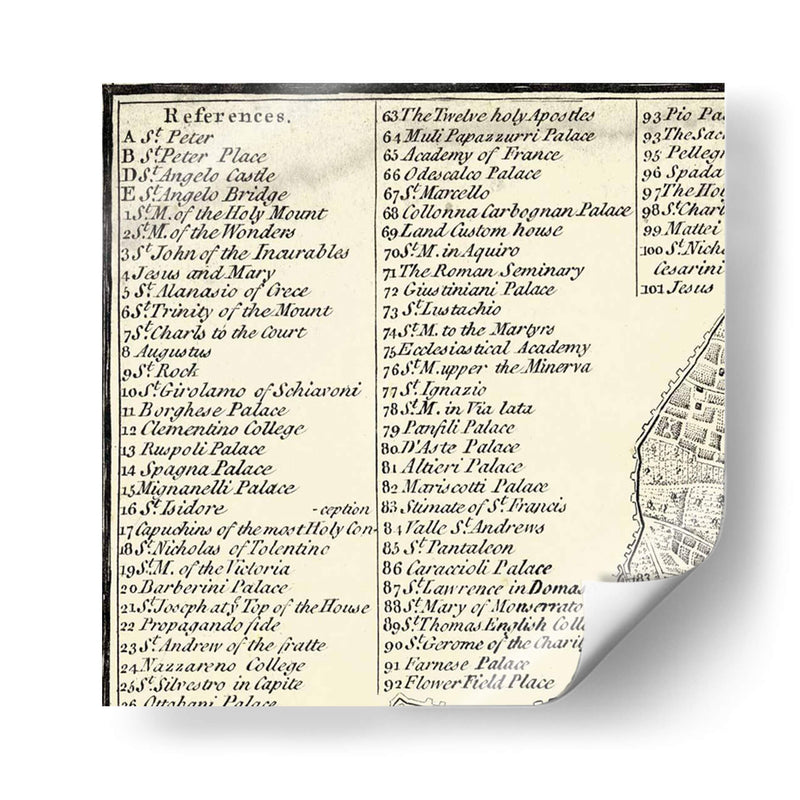 References.
A St. Peter
B St. Peter Place
D St. Angelo Castle
E St. Angelo Bridge
1 St. M. of the Holy Mount
2 St. M. of the Wonders
3 St. John of the Incurables
4 Jesus and Mary
5 St. Alanasio of Grece
6 St. Trinity of the Mount
7 St. Charls to the Court
8 Augustus
9 St. Rock
10 St. Girolamo of Schiavoni
11 Borghese Palace
12 Clementino College
13 Ruspoli Palace
14 Spagna Palace
15 Mignanelli Palace
16 St. Isidore -ception
17 Capuchins of the most Holy Con-
18 St. Nicholas of Tolentino
19 St. M. of the Victoria
20 Barberini Palace
21 St. Joseph at ye Top of the House
22 Propagando side
23 St. Andrew of the fratte
24 Nazzareno College
25 St. Silvestro in Capite
26 Ottobani Palace
63 The Twelve holy Apostles
64 Muli Papazzurri Palace
65 Academy of France
66 Odescalco Palace
67 St. Marcello
68 Collonna Carbognan Palace
69 Land Custom house
70 St. M. in Aquiro
71 The Roman Seminary
72 Giustiniani Palace
73 St. Lustachio
74 St. M. to the Martyrs
75 Ecclesiastical Academy
76 St. M. upper the Minerva
77 St. Ignazio
78 St. M. in Via lata
79 Panfili Palace
80 D'Aste Palace
81 Altieri Palace
82 Mariscotti Palace
83 Stimate of St. Francis
84 Valle St. Andrews
85 St. Pantaleon
86 Caraccioli Palace
87 St. Lawrence in Domas
88 St. Mary of Monserrato
89 St. Thomas English Coll
90 St. Gerome of the Charit
91 Farnese Palace
92 Flower Field Place
93 Pio Pa
93 The Sac
95 Pellegr
96 Spada
97 The Hol
98 St. Charl
99 Mattei
100 St. Nich
Cesarini
101 Jesus